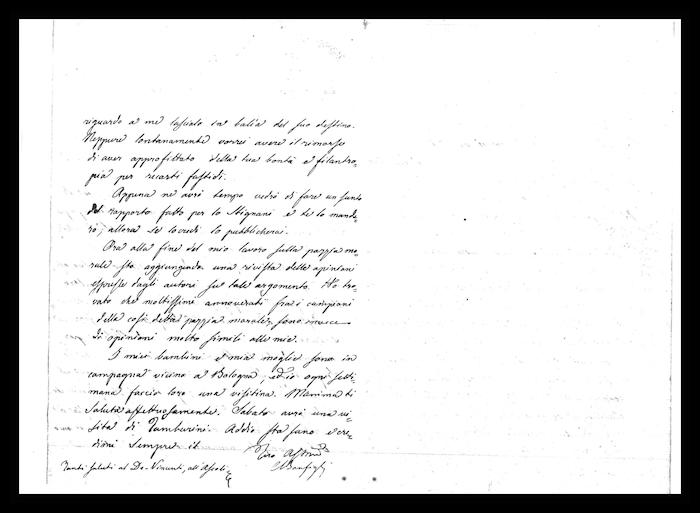 riguardo a me lascialo in balìa del suo destino.
Neppure lontanamente vorrei avere il rimorso
di aver approfittato della tua bontà e filantro-
pia per recarti fastidi.
Appena ne avrò tempo vedrò di fare un sunto
del rapporto fatto per lo Stignani e te lo mande-
rò, allora se lo credi lo pubblicherai.
Ora alla fine del mio lavoro sulla pazzia mo-
rale sto aggiungendo una rivista delle opinioni
espresse dagli autori su tale argomento. Ho tro-
vato che moltissimi annoverati fra i campioni
della così detta pazzia morale, sono invece
di opinioni molto simili alle mie.
I miei bambini e mia moglie sono in
campagna vicino a Bologna, ed io ogni setti-
mana faccio loro una visitina. Mamma ti
saluta affettuosamente. Sabato avrò una vi-
sita di Tamburini. Addio sta sano e cre-
dimi sempre il
Tuo
Bonfigli
Tanti saluti al De-Vincenti, all'Ascoli